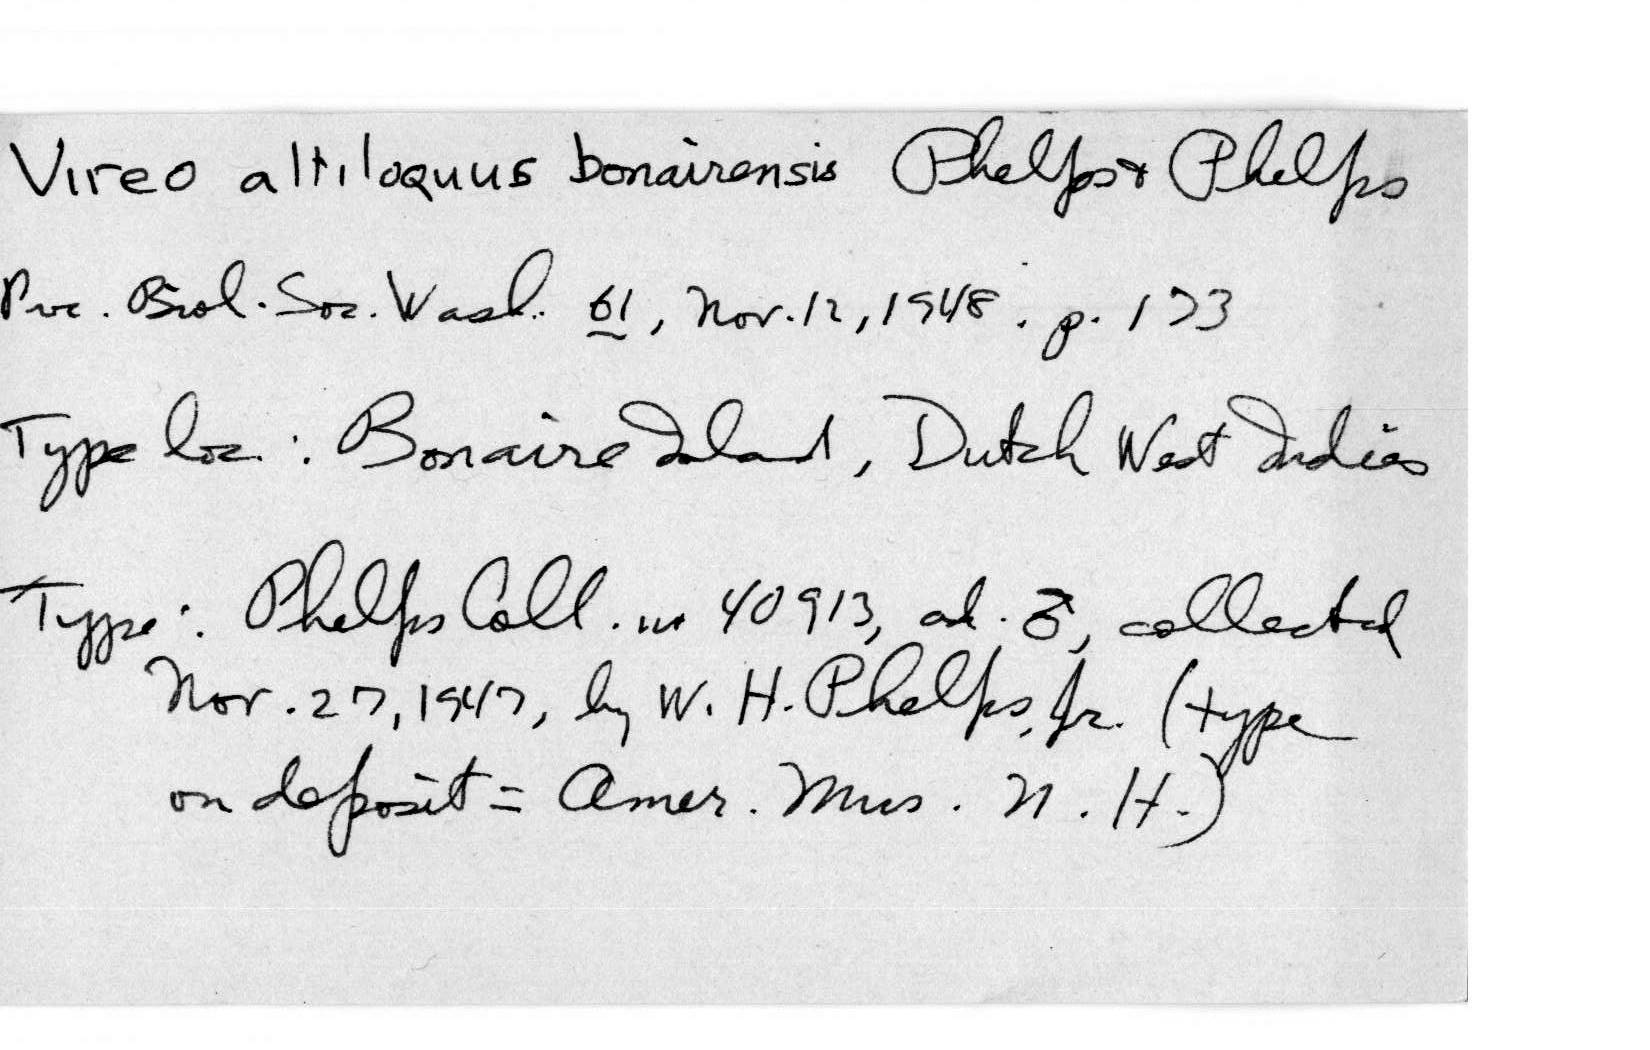 Vireo altiloquus bonairensis Phelps & Phelps
Proc. Biol. Soc. Wash. 61, Nov. 12, 1948. p. 173
Type loc.: Bonaire Island, Dutch West Indies
Type: Phelps Coll. no 40913, ad. ♂, collected
Nov. 27, 1947, by W. H. Phelps, Jr. (type
on deposit = Amer. Mus. N. H.)